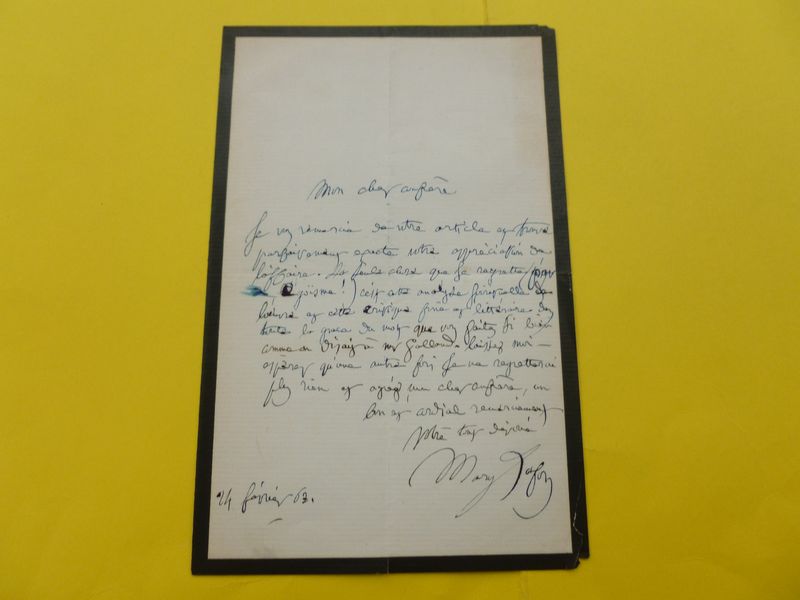 Mon cher confrère
Je vous remercie de votre article et trouve
parfaitement exacte votre appréciation de
l'affaire. La seule chose que je regrette (pour
égoïsme!) c'est cette analyse
et cette critique fine et littéraire
toute la grace du mot que vous faites si bien
comme on disait à Mr Galland. laissez moi
espérer qu'une autre fois Je ne regretterai
plus rien et agréez mon cher confrère, un
bon et cordial remerciement
votre tout dévoué
Mary Lafon
24 février 63.